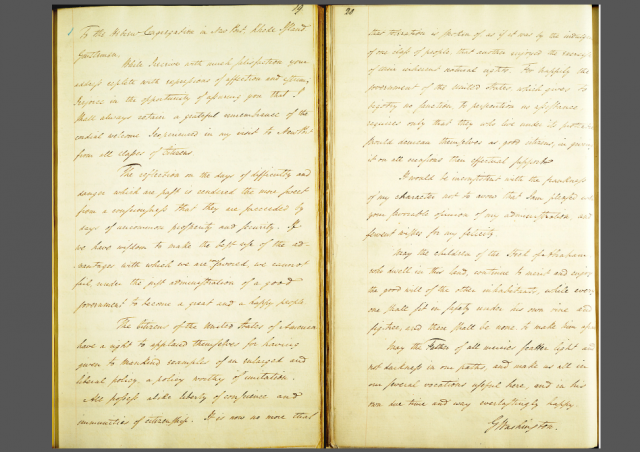 19
To the Hebrew Congregation in New Port, Rhode Island
Gentlemen.
While I receive with much satisfaction your
address replete with expressions of affection and esteem,
I rejoice in the opportunity of assuring you that I
shall always retain a grateful remembrance of the
cordial welcome I experienced in my visit to New Port
from all classes of Citizens
The reflection on the days of difficulty and
danger which are past is rendered the more sweet
from a consciousness that they are succeeded by
days of uncommon prosperity and security. If
we have wisdom to make the best use of the ad-
vantages with which we are favored, we cannot
fail, under the just administration of a good
government to become a great and a happy people
The Citizens of the United States of America
have a right to applaud themselves for having
given to Mankind examples of an enlarged and
liberal policy, a policy worthy of imitation.
All possess alike liberty of conscience and
immunities of citizenship. It is now no more that
20
that toleration is spoken of as if it was by the
of one class of people, that another enjoyed the
of their inherent natural rights. For happily the
government of the United States, which gives to
bigotry no sanction to persecution no assistance
requires only that they who live under its
should demean themselves as good citizens, in
it on all occasions their effectual support
It would be inconsistent with the frankness
of my character not to avow that I am pleased with
your favorable opinion of my administration and
fervent wishes for my felicity.
May the Children of the Stock of Abraham
who dwell in this land, continue to merit and enjoy
the good will of the other inhabitants, while every
one shall sit in safety under his own vine and
figtree, and there shall be none to make him
May the Father of all mercies scatter light and
not darkness in our paths, and make us all in
our several vocations useful here, and in his
own due time and way everlastingly happy.
G Washington.